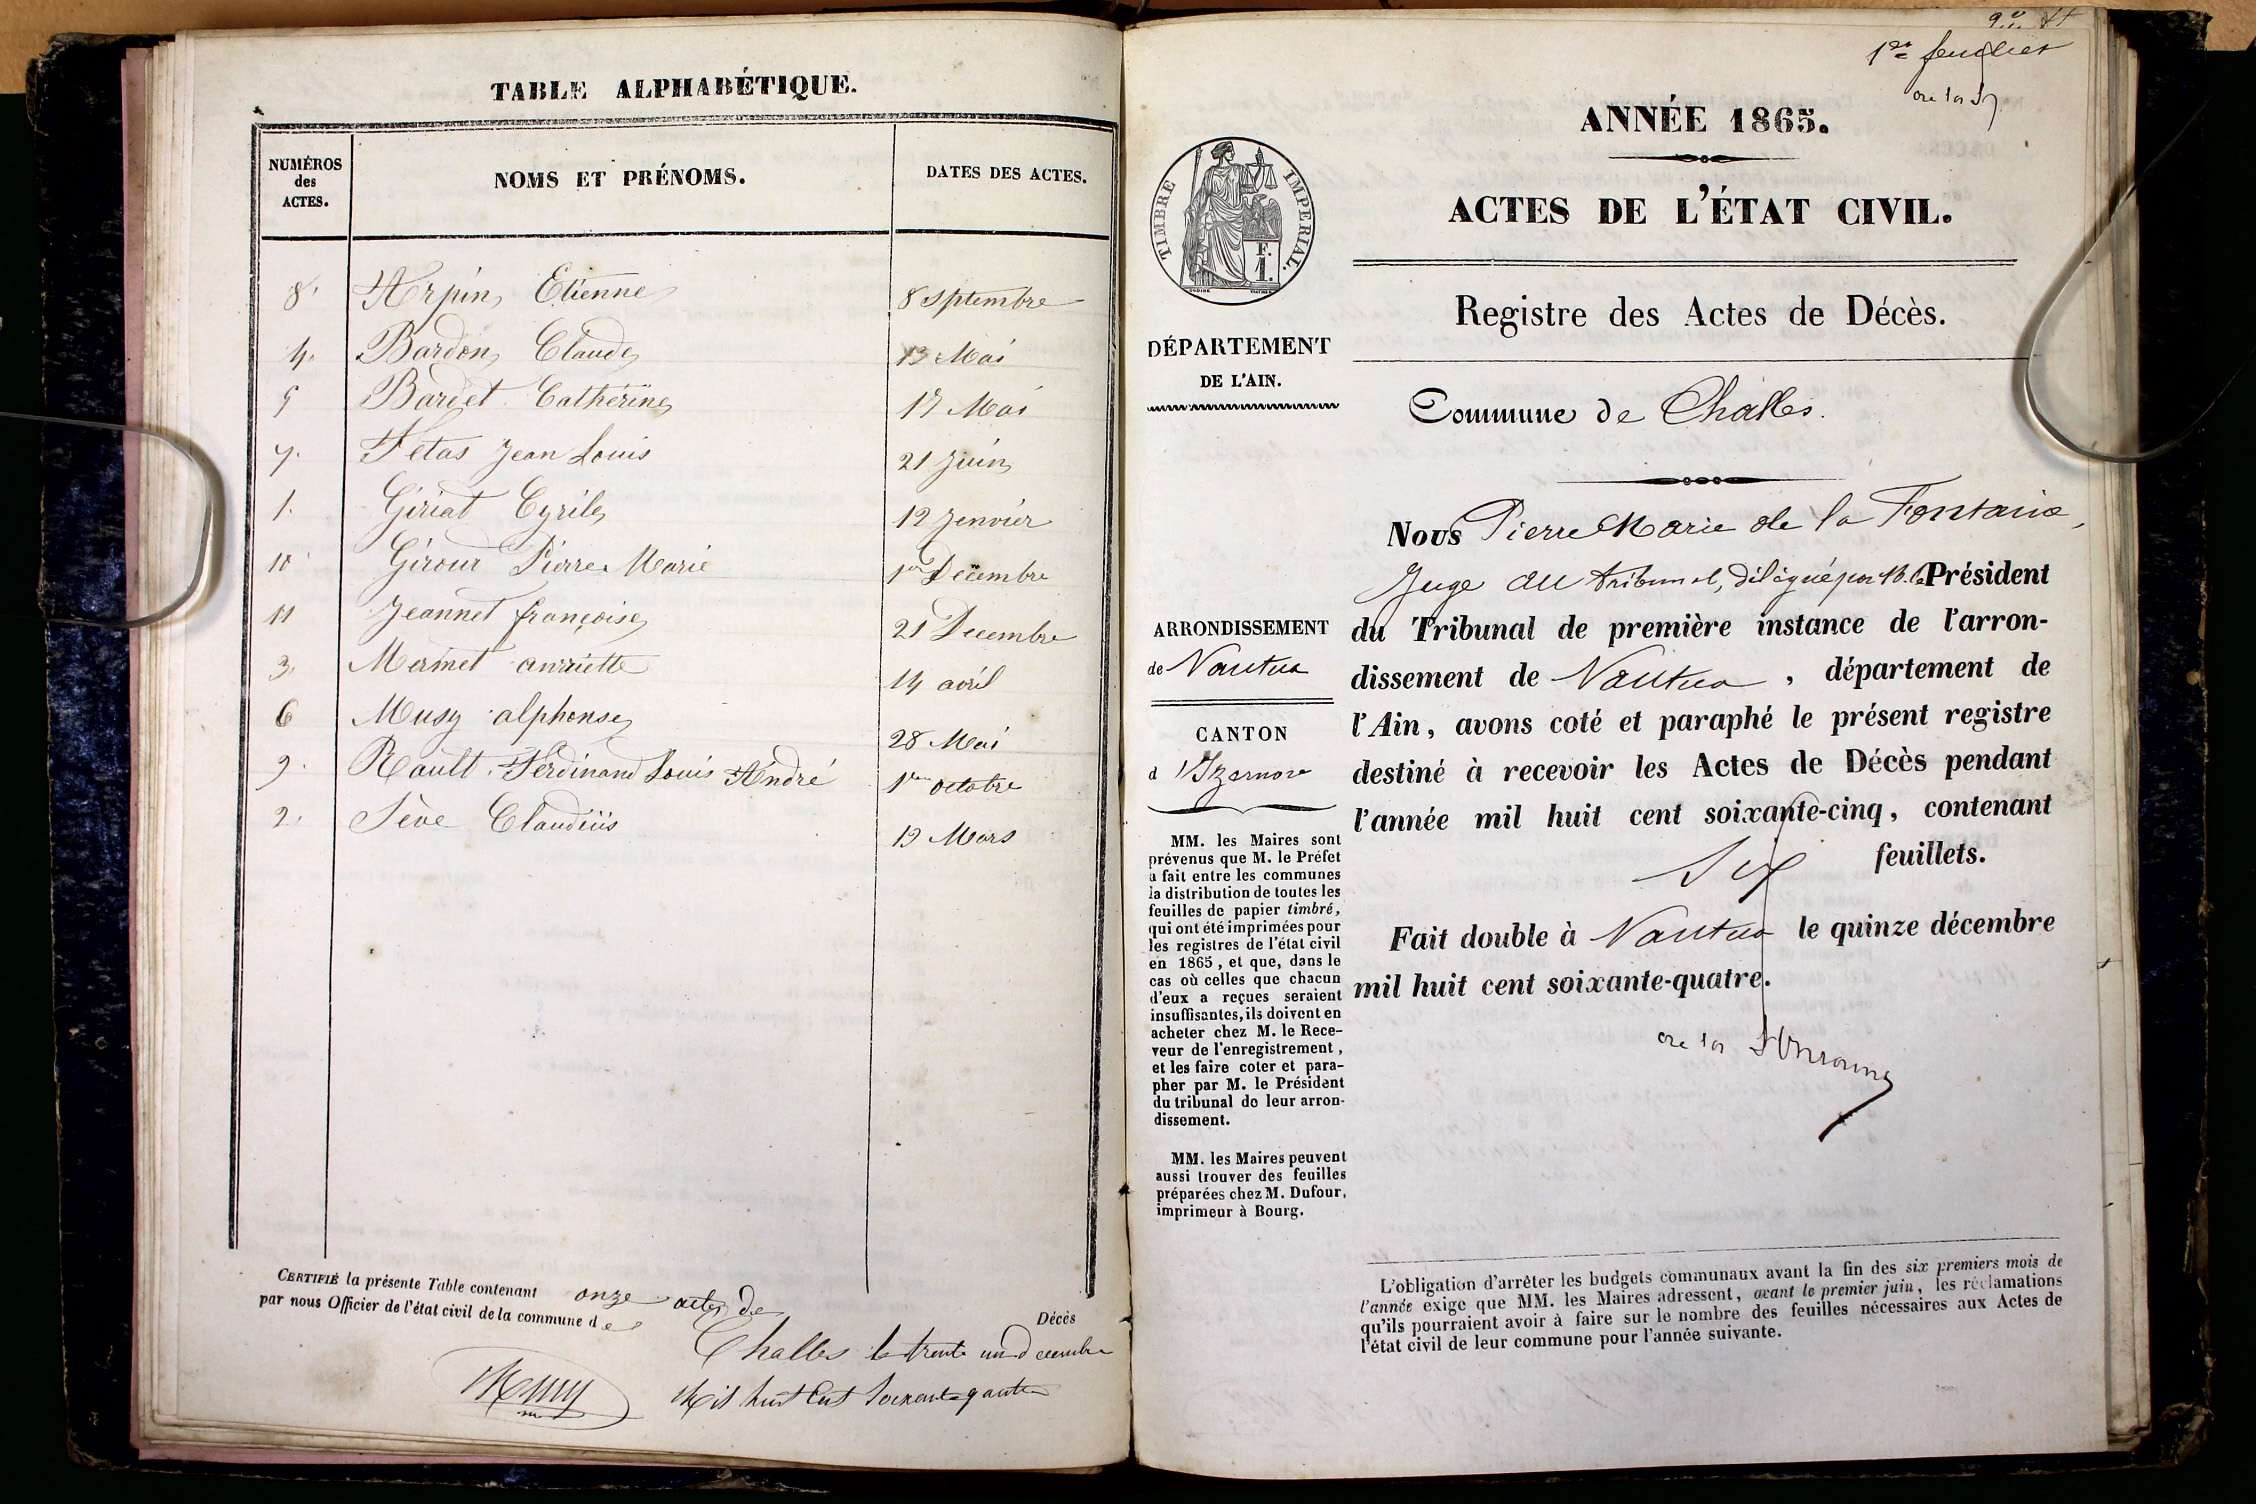 TABLE ALPHABÉTIQUE.
NUMÉROS
des
ACTES.
NOMS ET PRÉNOMS.
DATES DES ACTES.
8. Arpin Etienne 8 septembre
4. Bardon Claude 13 Mai
5 Bardet Catherine 17 Mai
7. Fetas Jean Louis 21 Juin
1. Giriat Cyrile 12 Jenvier
10 Girour Pierre Marie 1er Decembre
11 Jeannet françoise 21 Decembre
3. Mermet anriette 14 avril
6 Musy alphonse 28 Mai
9. Rault Ferdinand Louis André 1er octobre
2. Sève Claudius 19 Mars
CERTIFIÉ la présente Table contenant onze actes de Décès
par nous Officier de l'état civil de la commune de
Challes le trente un Decembre
Mil huit Cent Soixante quatre
Musy
1er feuillet
ANNÉE 1865.
ACTES DE L'ÉTAT CIVIL.
Registre des Actes de Décès.
Commune de Challes.
TIMBRE IMPÉRIAL.
F.
1.
DÉPARTEMENT
DE L'AIN.
ARRONDISSEMENT
de Nantua
CANTON
d'Izernore
MM. les Maires sont
prévenus que M. le Préfet
a fait entre les communes
la distribution de toutes les
feuilles de papier timbré,
qui ont été imprimées pour
les registres de l'état civil
en 1865, et que, dans le
cas où celles que chacun
d'eux a reçues seraient
insuffisantes, ils doivent en
acheter chez M. le Rece-
veur de l'enregistrement,
et les faire coter et para-
pher par M. le Président
du tribunal de leur arron-
dissement.
MM. les Maires peuvent
aussi trouver des feuilles
préparées chez M. Dufour,
imprimeur à Bourg.
Nous Pierre Marie de la Fontaine,
Juge au tribunal, délégué par M. le Président
du Tribunal de première instance de l'arron-
dissement de Nantua, département de
l'Ain, avons coté et paraphé le présent registre
destiné à recevoir les Actes de Décès pendant
l'année mil huit cent soixante-cinq, contenant
Six feuillets.
Fait double à Nantua le quinze décembre
mil huit cent soixante-quatre.
L'obligation d'arrêter les budgets communaux avant la fin des six premiers mois de
l'année exige que MM. les Maires adressent, avant le premier juin, les réclamations
qu'ils pourraient avoir à faire sur le nombre des feuilles nécessaires aux Actes de
l'état civil de leur commune pour l'année suivante.